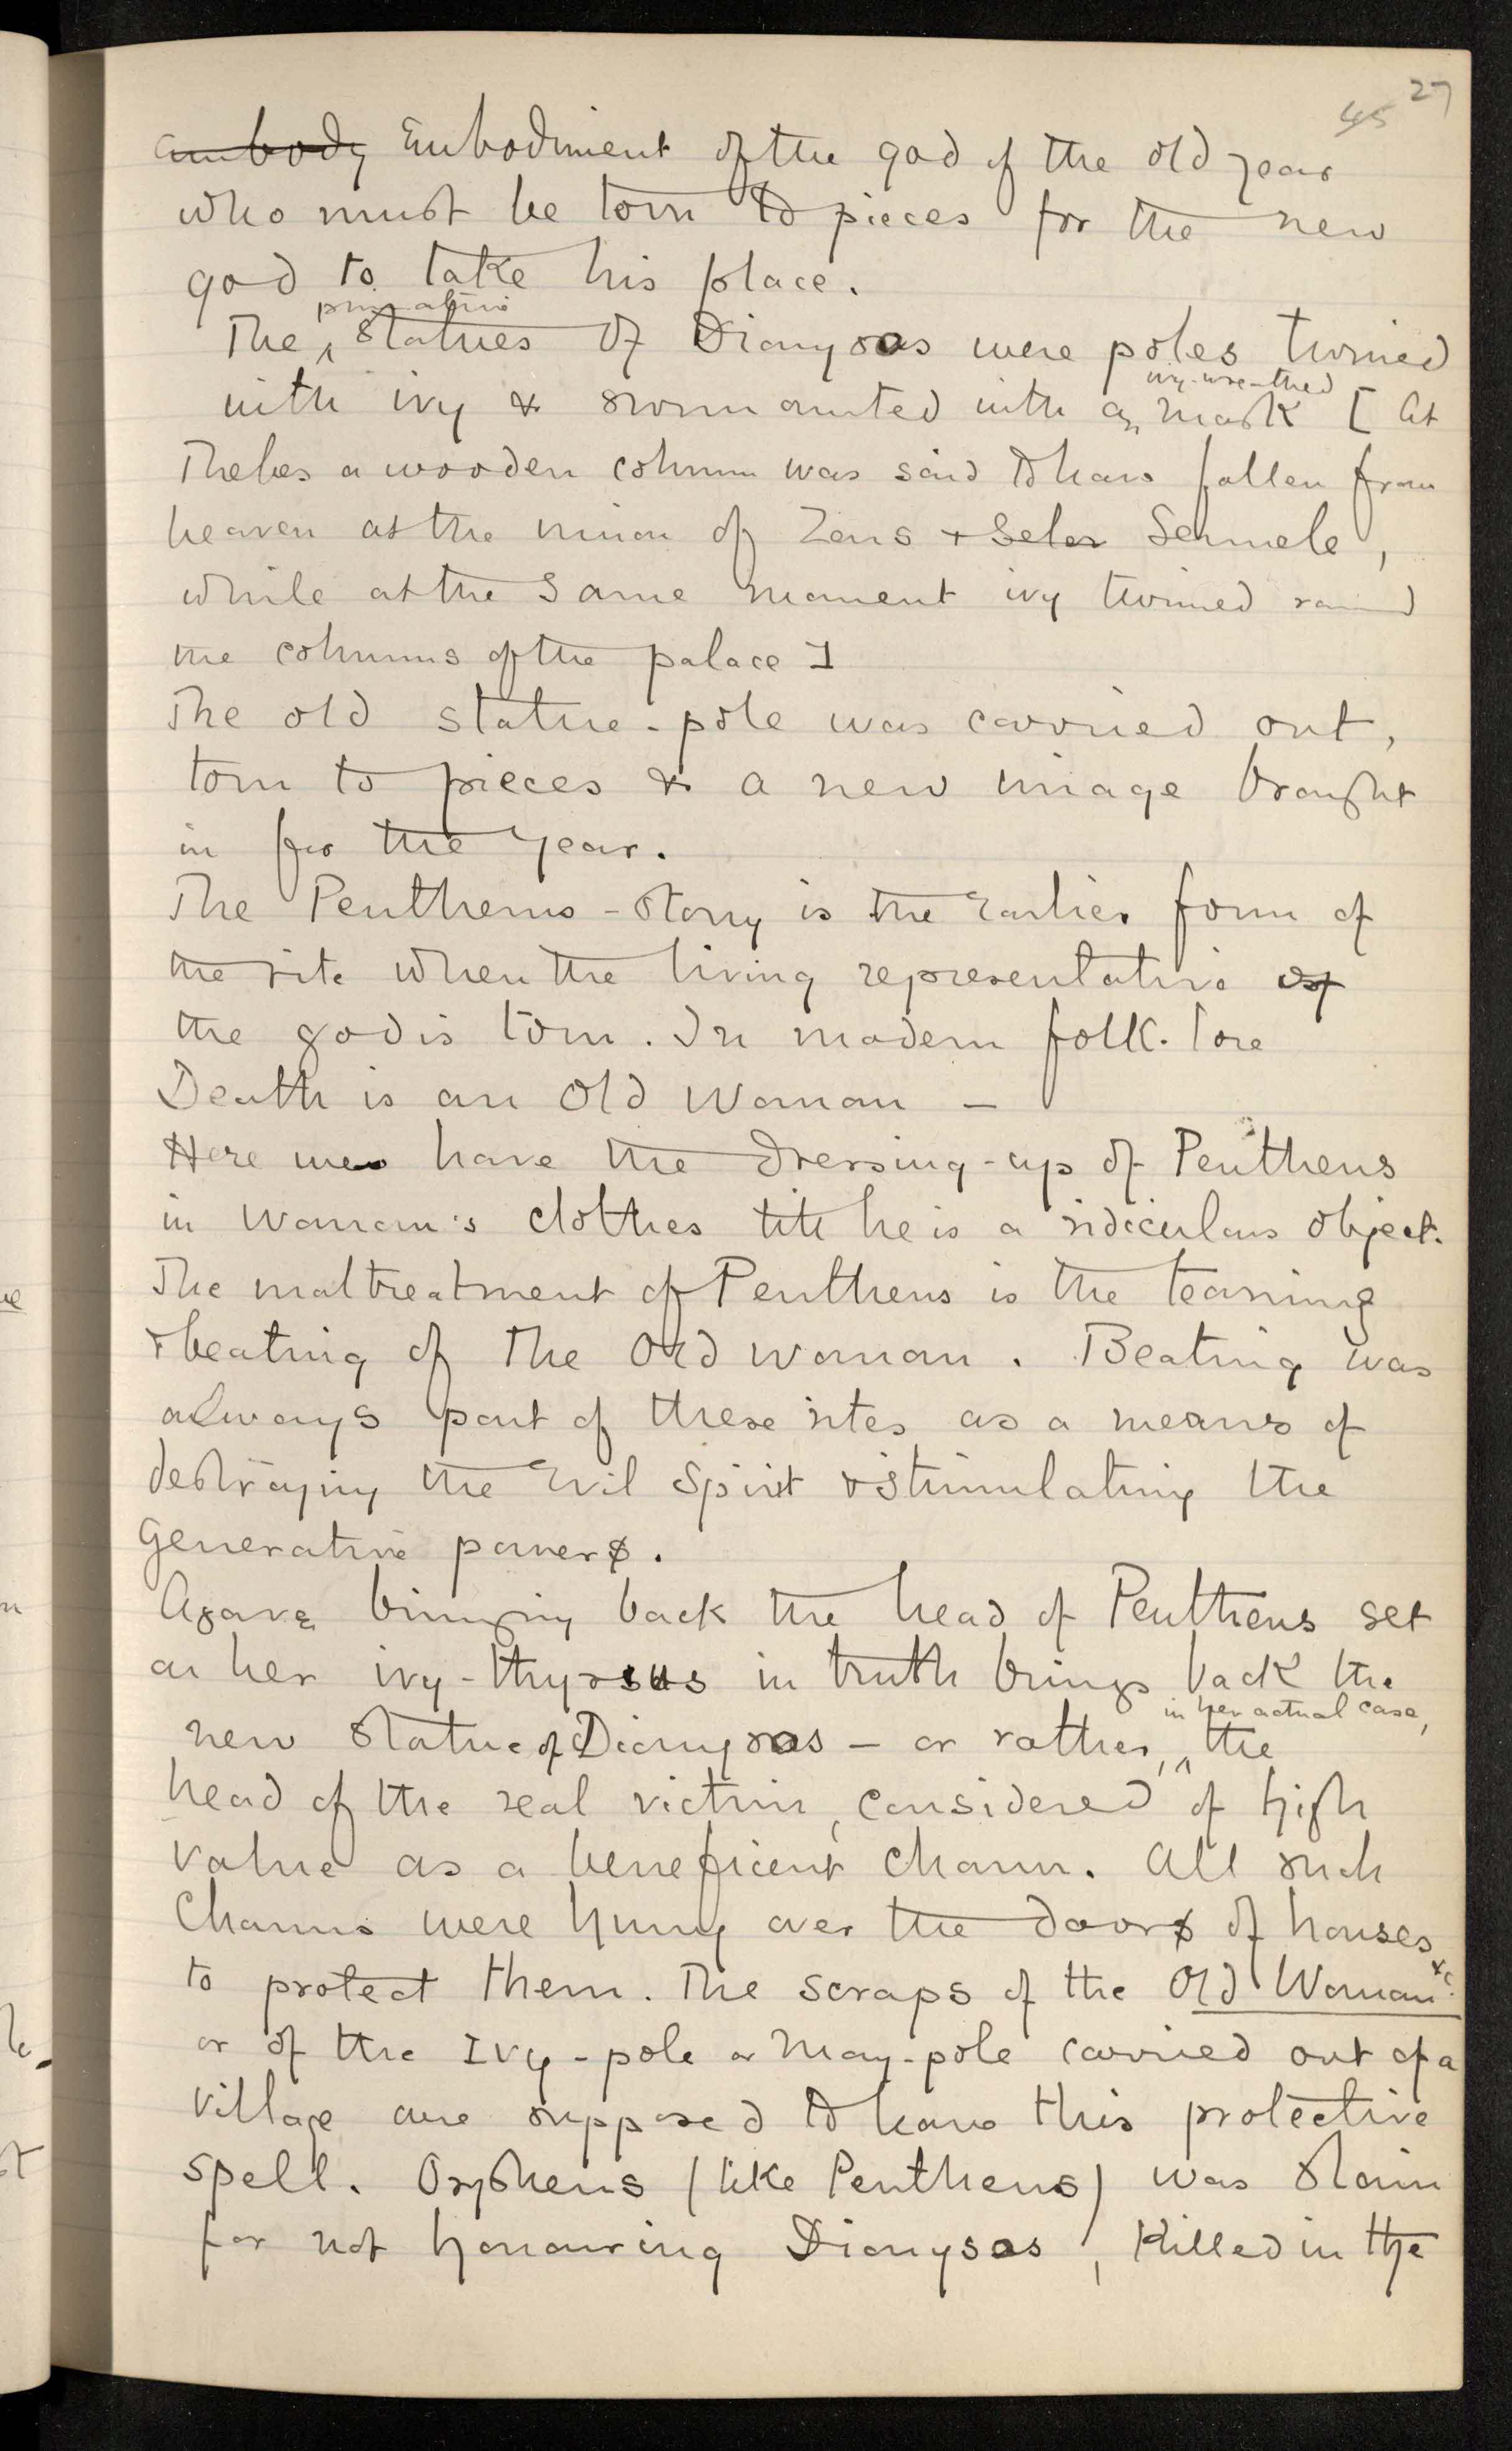 45 27
embody Embodiment of the god of the old year
who must be torn to pieces for the new
god to take his place.
primitive
The ^ statues of Dionysos were poles twined
ivy-wreathed
with ivy & surmounted with a ^ mask [ At
Thebes a wooden column was said to have fallen from
heaven at the union of Zeus + Seler Semele,
while at the same moment ivy twined round
the columns of the palace ]
The old statue-pole was carried out,
torn to pieces & a new image brought
in for the year.
The Pentheus-story is the Earlier form of
the rite when the living representative of
the god is torn. In modern folk-lore
Death is an Old Woman —
Here we have the dressing-up of Pentheus
in woman's clothes till he is a ridiculous object.
The maltreatment of Pentheus is the tearing
& beating of the Old Woman. Beating was
always part of these rites as a means of
destroying the Evil Spirit & stimulating the
generative powers.
Agave bringing back the head of Pentheus set
on her ivy-thyrsus in truth brings back the
in her actual case,
new statue of Dionysos — or rather, ^ the
head of the real victim, considered of high
value as a beneficent charm. All such
Charms were hung over the doors of houses
to protect them. The scraps of the Old Woman &c.
or of the Ivy-pole or May-pole carried out of a
village are supposed to have this protective
spell. Orpheus (like Pentheus) was slain
for not honouring Dionysos, killed in the